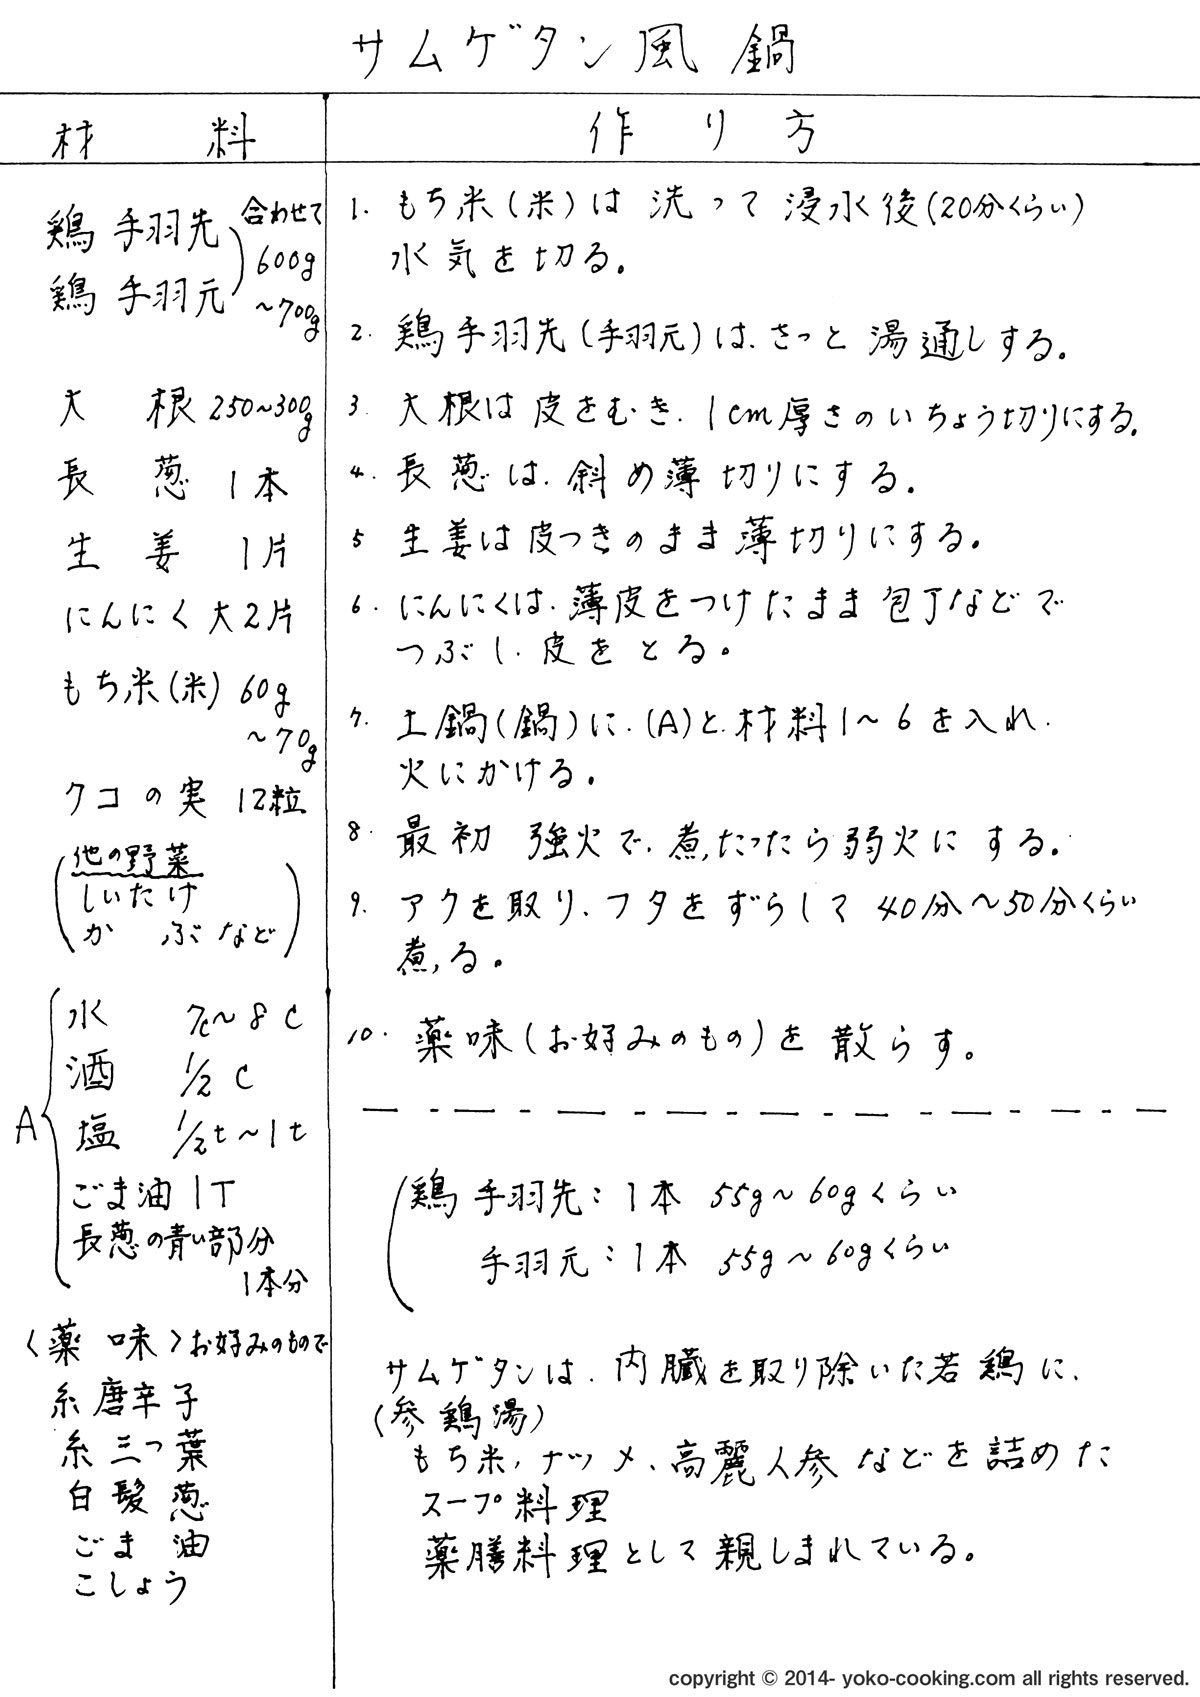 サムゲタン風鍋
材料
作り方
鶏手羽先
鶏手羽元
合わせて
600g
～700g
大根 250～300g
長葱 1本
生姜 1片
にんにく 大2片
もち米(米) 60g
～70g
クコの実 12粒
他の野菜
しいたけ
かぶなど
A
水 7c～8c
酒 1/2c
塩 1/2t～1t
ごま油 1T
長葱の青い部分
1本分
〈薬味〉お好みのもので
糸唐辛子
糸三つ葉
白髪葱
ごま油
こしょう
1. もち米(米)は洗って浸水後(20分くらい)
水気を切る。
2. 鶏手羽先(手羽元)は、さっと湯通しする。
3. 大根は皮をむき、1cm厚さのいちょう切りにする。
4. 長葱は、斜め薄切りにする。
5 生姜は皮つきのまま薄切りにする。
6. にんにくは、薄皮をつけたまま包丁などで
つぶし、皮をとる。
7. 土鍋(鍋)に、(A)と、材料1～6を入れ、
火にかける。
8. 最初強火で、煮たったら弱火にする。
9. アクを取り、フタをずらして40分～50分くらい
煮る。
10. 薬味(お好みのもの)を散らす。
鶏手羽先：1本 55g～60gくらい
手羽元：1本 55g～60gくらい
サムゲタンは、内臓を取り除いた若鶏に、
(参鶏湯)
もち米、ナツメ、高麗人参などを詰めた
スープ料理
薬膳料理として親しまれている。
copyright © 2014- yoko-cooking.com all rights reserved.